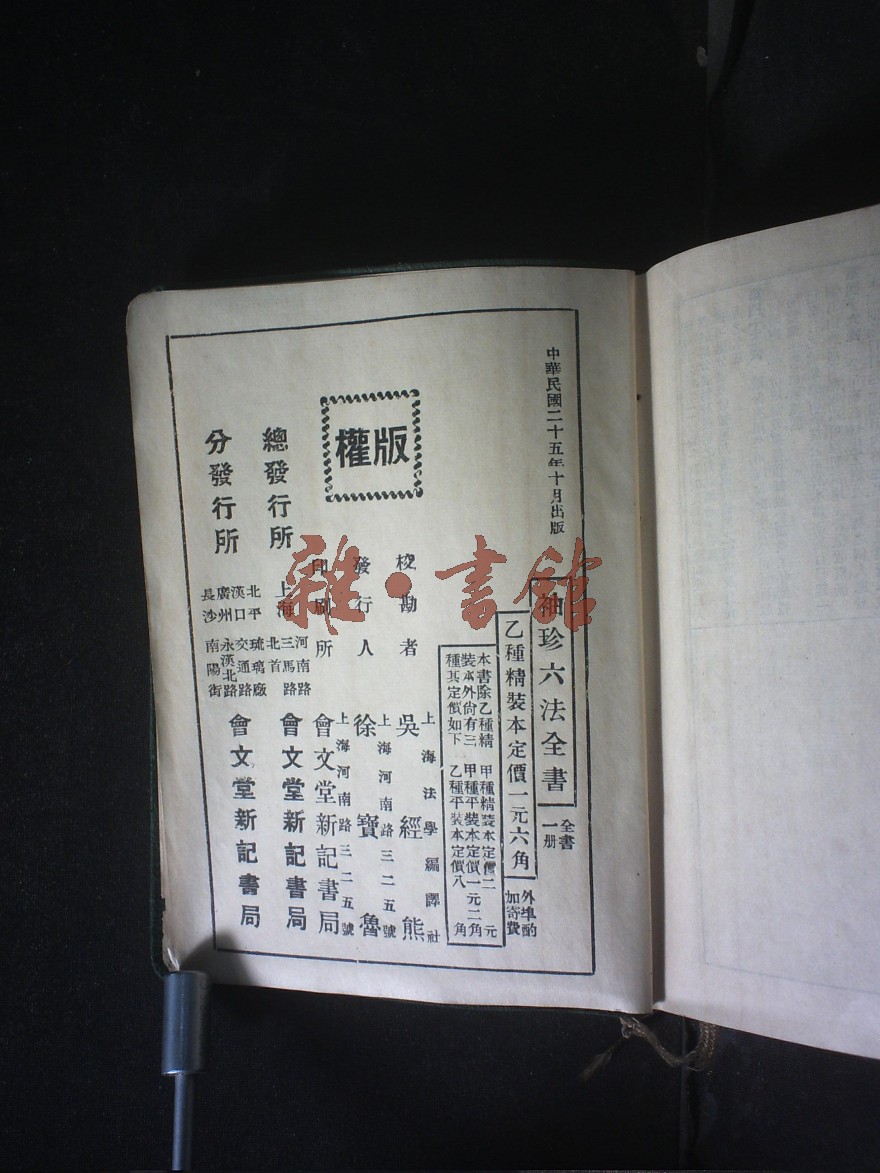 中華民國二十五年十月出版
袖珍六法全書
全書
一册
乙種精裝本定價一元六角
外埠酌
加寄費
本書除乙種精
裝本外尙有三
種其定價如下
甲種精裝本定價二元
甲種平裝本定價一元二角
乙種平裝本定價八角
版權
校勘者
上海法學編譯社
吳經熊
發行人
上海河南路三二五號
徐寶魯
印刷所
上海河南路三二五號
會文堂新記書局
總發行所
上海
河南路
三馬路
北首
會文堂新記書局
分發行所
北平 琉璃廠
漢口 交通路
廣州 永漢北路
長沙 南陽街
會文堂新記書局
雜·書館